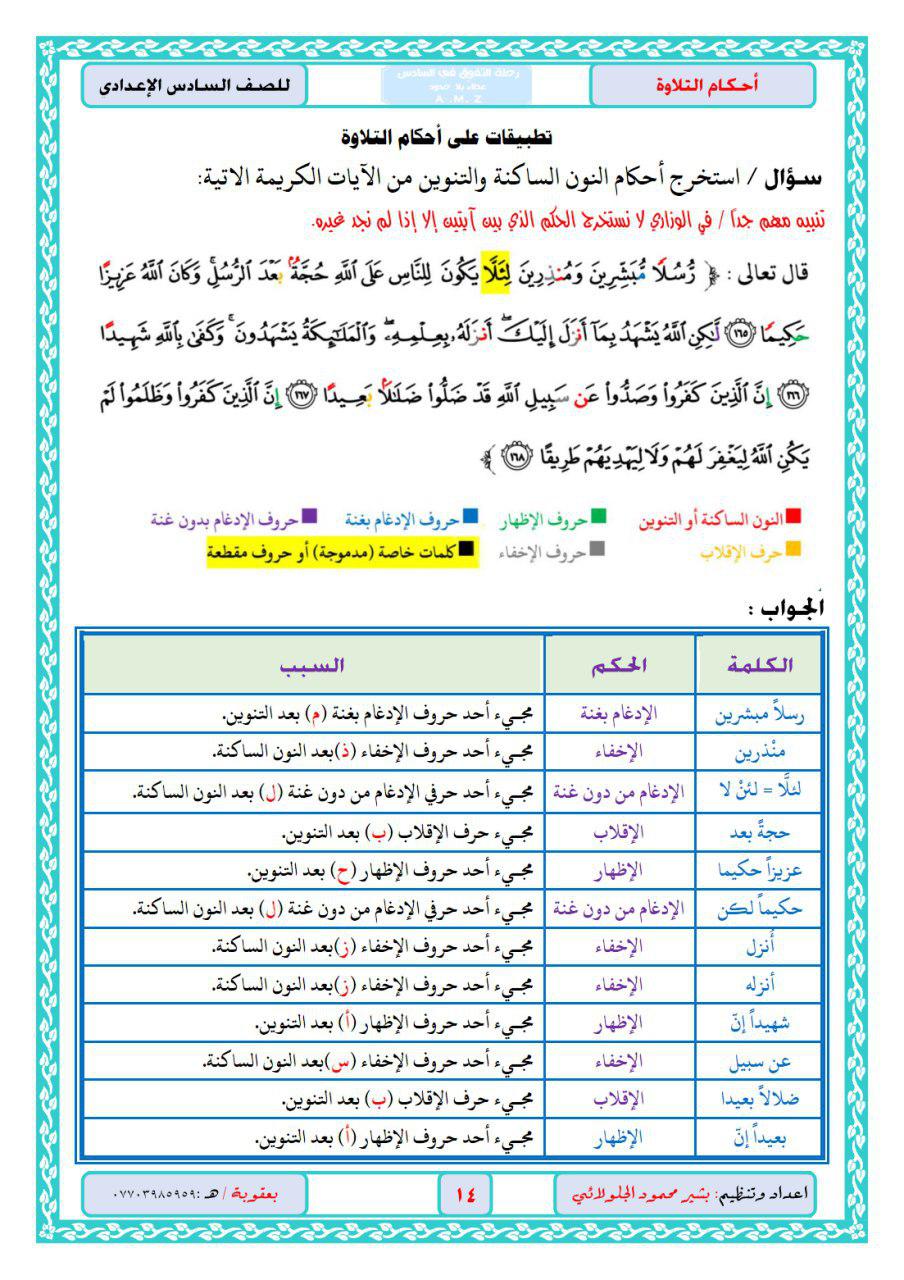 أحكام التلاوة
رحلة التفوق في السادس
عطاء بلا حدود
A .M. Z
للصف السادس الإعدادي
تطبيقات على أحكام التلاوة
سؤال / استخرج أحكام النون الساكنة والتنوين من الآيات الكريمة الاتية:
تنبيه مهم جداً / في الوزاري لا نستخرج الحكم الذي بين آيتين إلا إذا لم نجد غيره.
قال تعالى : ﴿ رُّسُلًا مُّبَشِّرِينَ وَمُنذِرِينَ لِئَلَّا يَكُونَ لِلنَّاسِ عَلَى ٱللَّهِ حُجَّةٌۢ بَعْدَ ٱلرُّسُلِۚ وَكَانَ ٱللَّهُ عَزِيزًا
حَكِيمًا ١٦٥ لَّٰكِنِ ٱللَّهُ يَشْهَدُ بِمَآ أَنزَلَ إِلَيْكَۖ أَنزَلَهُۥ بِعِلْمِهِۦۖ وَٱلْمَلَٰٓئِكَةُ يَشْهَدُونَۚ وَكَفَىٰ بِٱللَّهِ شَهِيدًا
١٦٦ إِنَّ ٱلَّذِينَ كَفَرُوا۟ وَصَدُّوا۟ عَن سَبِيلِ ٱللَّهِ قَدْ ضَلُّوا۟ ضَلَٰلًۢا بَعِيدًا ١٦٧ إِنَّ ٱلَّذِينَ كَفَرُوا۟ وَظَلَمُوا۟ لَمْ
يَكُنِ ٱللَّهُ لِيَغْفِرَ لَهُمْ وَلَا لِيَهْدِيَهُمْ طَرِيقًا ١٦٨ ﴾
النون الساكنة أو التنوين حروف الإظهار حروف الإدغام بغنة حروف الإدغام بدون غنة
حرف الإقلاب حروف الإخفاء كلمات خاصة (مدموجة) أو حروف مقطعة
الجواب :
الكلمة الحكم السبب
رسلاً مبشرين الإدغام بغنة مجيء أحد حروف الإدغام بغنة (م) بعد التنوين.
منْذرين الإخفاء مجيء أحد حروف الإخفاء (ذ)بعد النون الساكنة.
لئلَّا = لئنْ لا الإدغام من دون غنة مجيء أحد حرفي الإدغام من دون غنة (ل) بعد النون الساكنة.
حجةً بعد الإقلاب مجيء حرف الإقلاب (ب) بعد التنوين.
عزيزاً حكيما الإظهار مجيء أحد حروف الإظهار (ح) بعد التنوين.
حكيماً لكن الإدغام من دون غنة مجيء أحد حرفي الإدغام من دون غنة (ل) بعد النون الساكنة.
أُنزل الإخفاء مجيء أحد حروف الإخفاء (ز)بعد النون الساكنة.
أنزله الإخفاء مجيء أحد حروف الإخفاء (ز)بعد النون الساكنة.
شهيداً إنّ الإظهار مجيء أحد حروف الإظهار (أ) بعد التنوين.
عن سبيل الإخفاء مجيء أحد حروف الإخفاء (س)بعد النون الساكنة.
ضلالاً بعيدا الإقلاب مجيء حرف الإقلاب (ب) بعد التنوين.
بعيداً إنّ الإظهار مجيء أحد حروف الإظهار (أ) بعد التنوين.
اعداد وتنظيم: بشير محمود الجلولائي
١٤
بعقوبة / هـ :٠٧٧٠٣٩٨٥٩٥٩